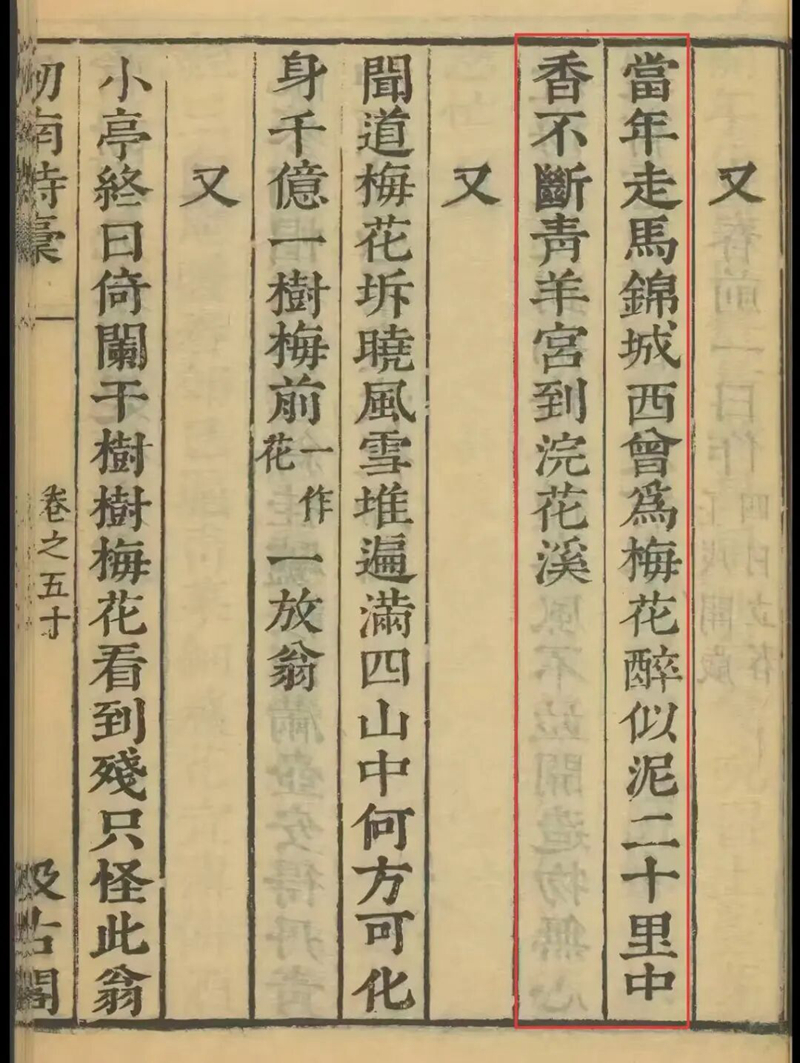 又
當年走馬錦城西曾爲梅花醉似泥二十里中
香不斷靑羊宮到浣花溪
又
聞道梅花坼曉風雪堆遍滿四山中何方可化
身千億一樹梅前一作花一放翁
又
小亭終日倚闌干樹樹梅花看到殘只怪此翁
劒南詩稾
卷之五十
汲古閣